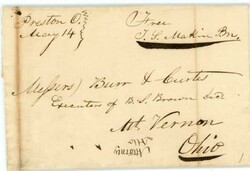 Preston O.
May 14
Free
Messers) Burr & Curtis
Executors of B. S. Brown Decd
Mt. Vernon
Ohio